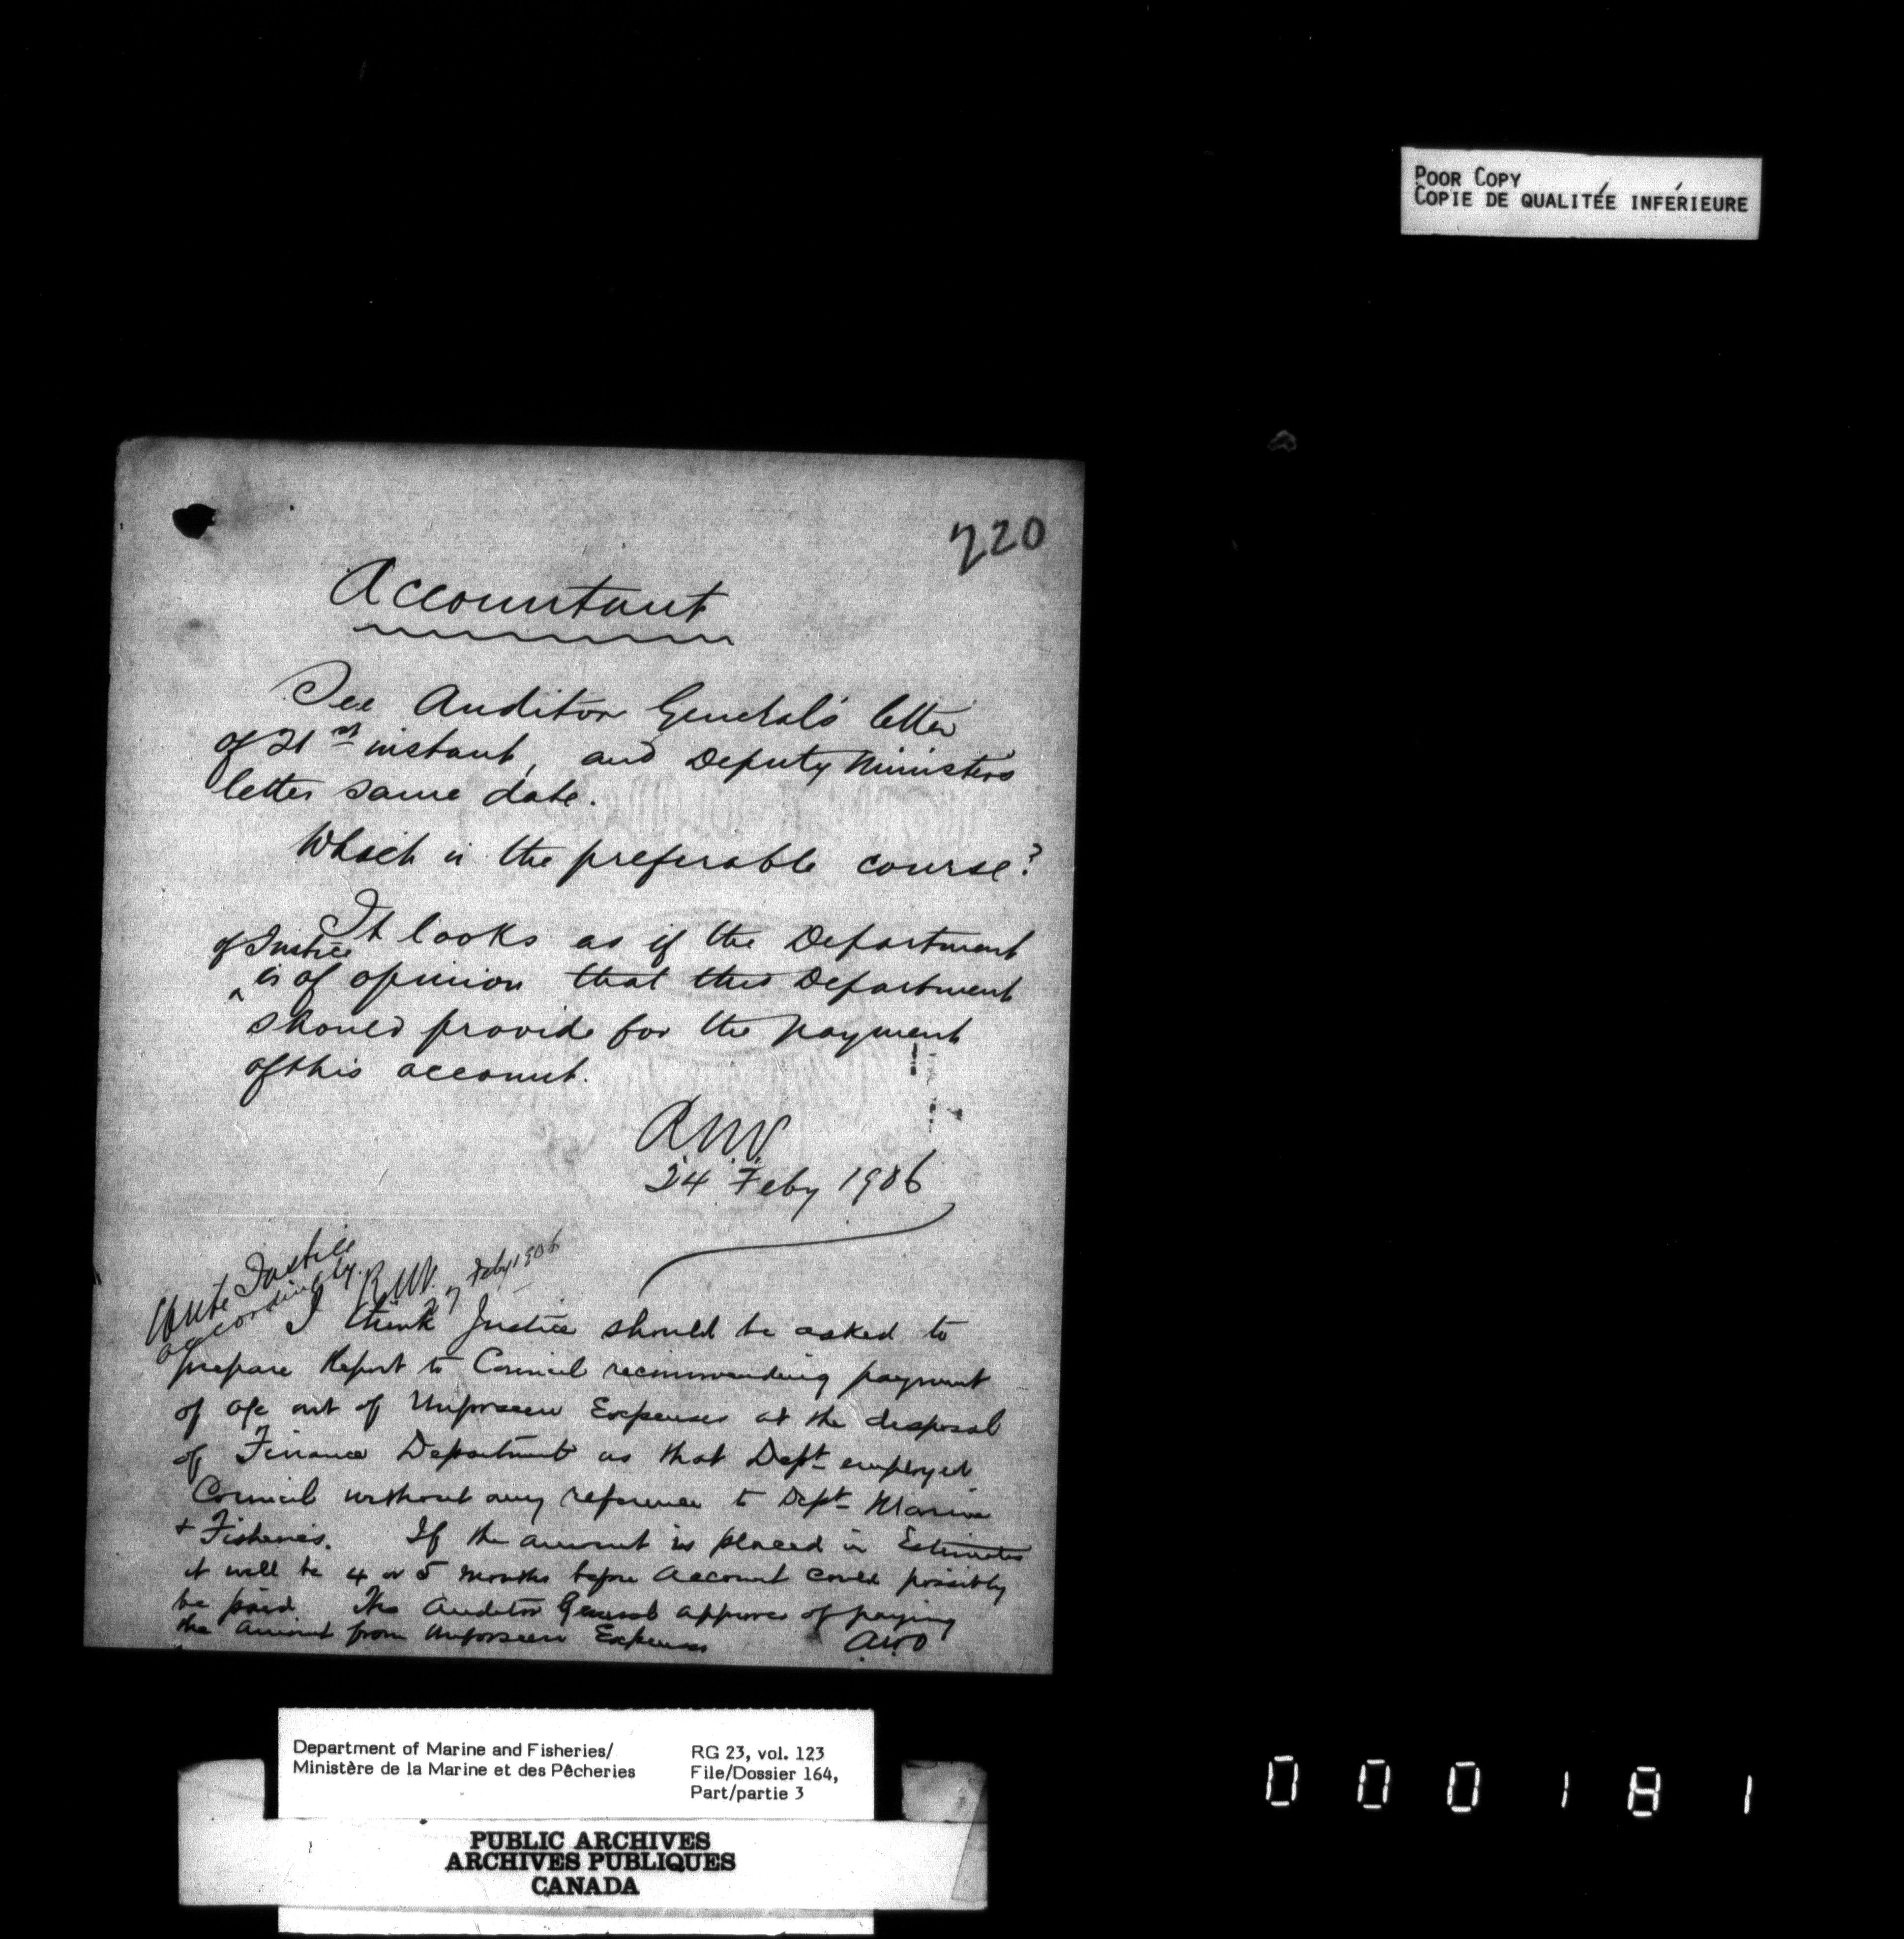 POOR COPY
COPIE DE QUALITÉE INFÉRIEURE
220
Accountant
See Auditor General's letter
of 21st instant, and Deputy Ministers
letter same date.
Which is the preferable course?
It looks as if the Department
of Justice
is of opinion that this Department
should provide for the payment
of this account.
R.N.V.
24 Feby 1906
Write Justice
accordingly. R.N.V.
27 Feby 1906
I think Justice should be asked to
prepare Report to Council recommending payment
of a/c out of Unforseen Expenses at the disposal
of Finance Department as that Dept employed
Council without any reference to Dept Marine
+ Fisheries. If the amount is placed in Estimates
it will be 4 or 5 months before account could possibly
be paid. The Auditor General approves of paying
the amount from Unforseen Expenses A.W.O
Department of Marine and Fisheries/
Ministère de la Marine et des Pêcheries
RG 23, vol. 123
File/Dossier 164,
Part/partie 3
PUBLIC ARCHIVES
ARCHIVES PUBLIQUES
CANADA
000181